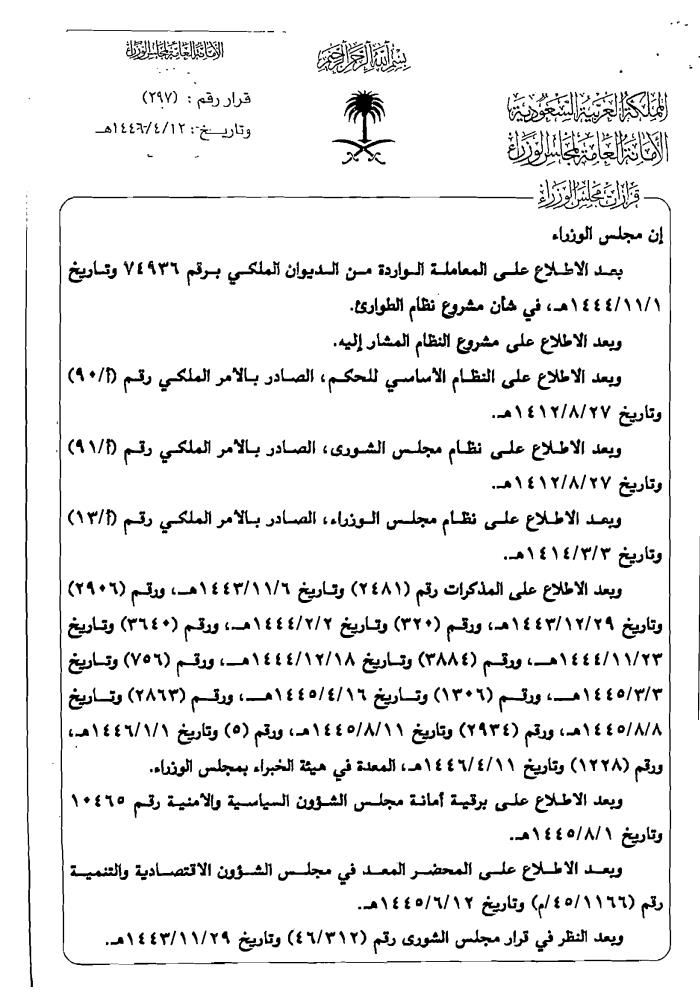 بسم الله الرحمن الرحيم
المملكة العربية السعودية
الأمانة العامة لمجلس الوزراء
الأمانة العامة لمجلس الوزراء
قرار رقم : (٢٩٧)
وتاريخ: ١٤٤٦/٤/١٢هـ
قرارات مجلس الوزراء
إن مجلس الوزراء
بعد الاطلاع على المعاملة الواردة من الديوان الملكي برقم ٧٤٩٣٦ وتاريخ
١٤٤٤/١١/١هـ، في شأن مشروع نظام الطوارئ.
وبعد الاطلاع على مشروع النظام المشار إليه.
وبعد الاطلاع على النظام الأساسي للحكم، الصادر بالأمر الملكي رقم (أ/٩٠)
وتاريخ ١٤١٢/٨/٢٧هـ.
وبعد الاطلاع على نظام مجلس الشورى، الصادر بالأمر الملكي رقم (أ/٩١)
وتاريخ ١٤١٢/٨/٢٧هـ.
وبعد الاطلاع على نظام مجلس الوزراء، الصادر بالأمر الملكي رقم (أ/١٣)
وتاريخ ١٤١٤/٣/٣هـ.
وبعد الاطلاع على المذكرات رقم (٢٤٨١) وتاريخ ١٤٤٣/١١/٦هـ، ورقم (٢٩٠٦)
وتاريخ ١٤٤٣/١٢/٢٩هـ، ورقم (٣٢٠) وتاريخ ١٤٤٤/٢/٢هـ، ورقم (٣٦٤٠) وتاريخ
١٤٤٤/١١/٢٣هـ، ورقم (٣٨٨٤) وتاريخ ١٤٤٤/١٢/١٨هـ، ورقم (٧٥٦) وتاريخ
١٤٤٥/٣/٣هـ، ورقم (١٣٠٦) وتاريخ ١٤٤٥/٤/١٦هـ، ورقم (٢٨٦٣) وتاريخ
١٤٤٥/٨/٨هـ، ورقم (٢٩٣٤) وتاريخ ١٤٤٥/٨/١١هـ، ورقم (٥) وتاريخ ١٤٤٦/١/١هـ،
ورقم (١٢٢٨) وتاريخ ١٤٤٦/٤/١١هـ، المعدة في هيئة الخبراء بمجلس الوزراء.
وبعد الاطلاع على برقية أمانة مجلس الشؤون السياسية والأمنية رقم ١٠٤٦٥
وتاريخ ١٤٤٥/٨/١هـ.
وبعد الاطلاع على المحضر المعد في مجلس الشؤون الاقتصادية والتنمية
رقم (٤٥/١١٦٦/م) وتاريخ ١٤٤٥/٦/١٢هـ.
وبعد النظر في قرار مجلس الشورى رقم (٤٦/٣١٢) وتاريخ ١٤٤٣/١١/٢٩هـ.